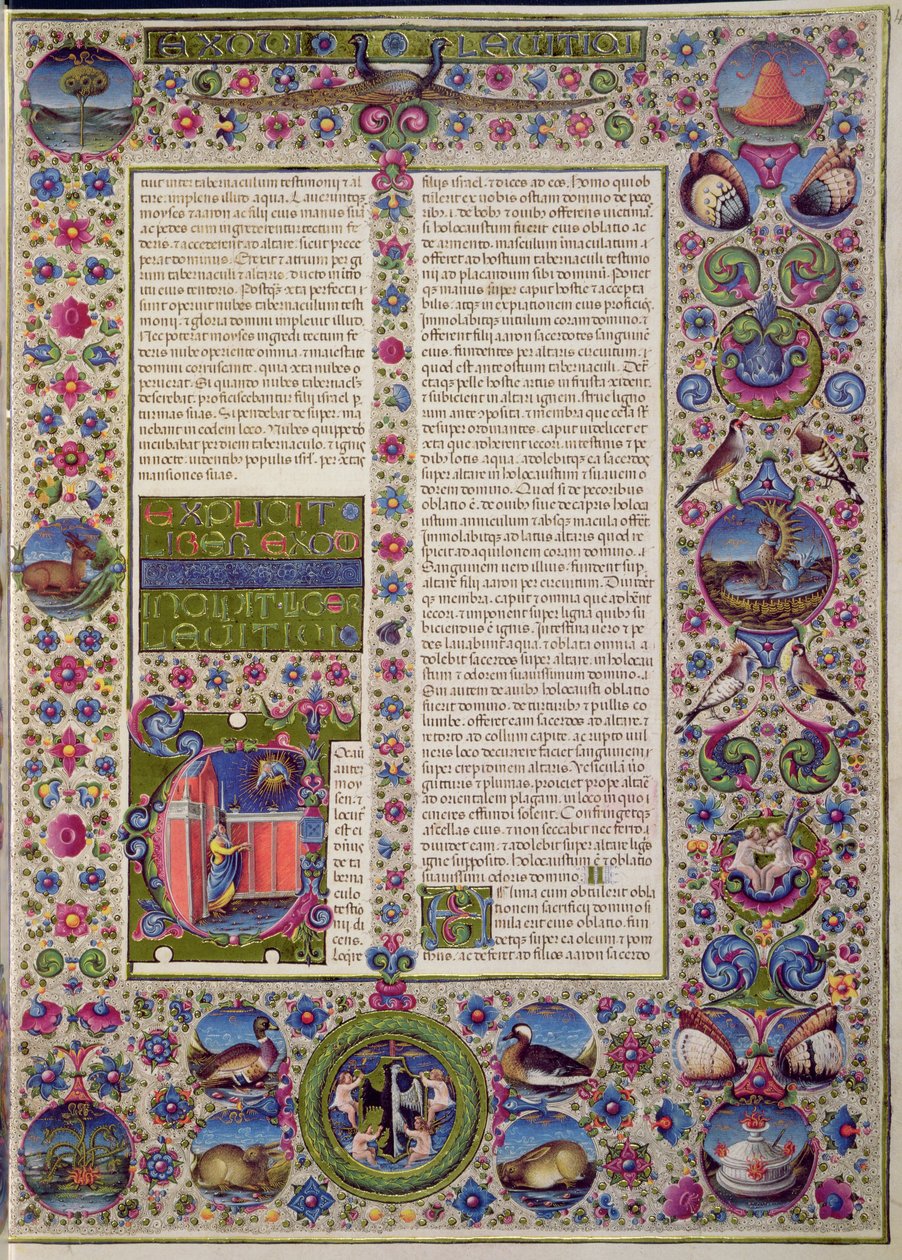 EXOVI LEVITICI
tuit inter tabernaculum testimonij ⁊ al
tare implens illud aqua. Laueruntqꝫ
moyses ⁊ aaron ac filij eius manus suas
ac pedes cum ingrederentur tectum fe
deris ⁊ accederent ad altare sicut prece
perat dominus. Erexit ⁊ atrium per gi
rum tabernaculi ⁊ altaris ducto in itro
itu eius tentorio. Postqꝫ oīa perfecta sunt
operuit nubes tabernaculum testi
monij ⁊ gloria domini impleuit illud.
Nec poterat moyses ingredi tectum fe
deris nube operiente omnia ⁊ maiestate
domini coruscante. quia cūcta nubes o
peruerat. Si quando nubes tabernacl̄m
deserebat. proficiscebantur filij israel p
turmas suas. Si pendebat desuper. ma
nebant in eodem loco. Nubes quippe dn̄i
incubabat per diem tabernaculo. ⁊ ignis
in nocte. uidentibꝰ populis isrl̄. per cūctas
mansiones suas.
EXPLICIT
LIBER EXOD
INCIPIT LIBER
LEVITICI
Ocauit
autem
moy
sen. ⁊
locutꝰ
est ei
dn̄s
de ta
berna
culo
testio
nij. di
cens.
Loq̄re
filijs israel. ⁊ dices ad eos. Homo qui ob
tulerit ex uobis ostiam domino de pecoꝛ
ribꝰ. i. de bobꝰ ⁊ ouibꝰ offerens uictimas
si holocaustum fuerit eius oblatio ac
de armento. masculum inmaculatum
offeret ad hostium tabernaculi testimo
nij ad placandum sibi dominū. Ponet
qꝫ manus super caput hostie ⁊ accepta
bilis. atqꝫ in expiationem eius proficiēs.
Immolabitqꝫ uitulum coram domino. ⁊
offerent filij aaron sacerdotes sanguinē
eius. fundentes per altaris circuitum.
quod est ante ostium tabernaculi. Detr̄
ctaqꝫ pelle hostie artus in frusta cōcident.
⁊ subicient in altari ignem. strue ligno
rum ante cōposita. ⁊ membra que cesa sūt
desuper ordinantes. caput uidelicet et
cūcta que adherent iecori. intestinis ⁊ pe
dibꝰ lotis aqua. adolebitqꝫ ea sacerdos
super altare in holocaustum ⁊ suauem o
dorem domino. Quod si de pecoribus
oblatio ē. de ouibꝰ siue de capris holoca
ustum anniculum ⁊ absqꝫ macula offeret.
Immolabitqꝫ ad latus altaris quod re
spicit ad aquilonem coram domino.
Sanguinem uero illius. fundent sup
altare filij aaron per circuitum. Diuident
qꝫ membra. caput ⁊ omnia que adherent
iecori. ⁊ imponent super ligna quibꝰ su
biciendus ē ignis. Intestina uero ⁊ pe
des lauabunt aqua. ⁊ oblata omnia a
dolebit sacerdos super altare. in holocau
stum ⁊ odorem suauissimum domino.
Sin autem de auibꝰ holocausti oblatio
fuerit domino. de turturibꝰ ⁊ pullis co
lumbe. offeret eam sacerdos ad altare. ⁊
retorto ad collum capite. ac rupto uul
neris loco decurrere faciet sanguinem
super crepidinem altaris. Vesiculā uō
guturis ⁊ plumas. proiciet prope altare
ad orientalem plagam. in loco in quo
cineres effundi solent. Confringetqꝫ
ascellas eius. ⁊ non secabit nec ferro
diuidet eam. ⁊ adolebit super altare lignis
igne supposito. holocaustum ē ⁊ oblatio
suauissimi odoris domino. II
Anima cum obtulerit obla
tionem sacrificij domino si
mila erit eius oblatio. fun
detqꝫ super ea oleum. ⁊ ponet
thus. ac deferet ad filios aaron sacerdo